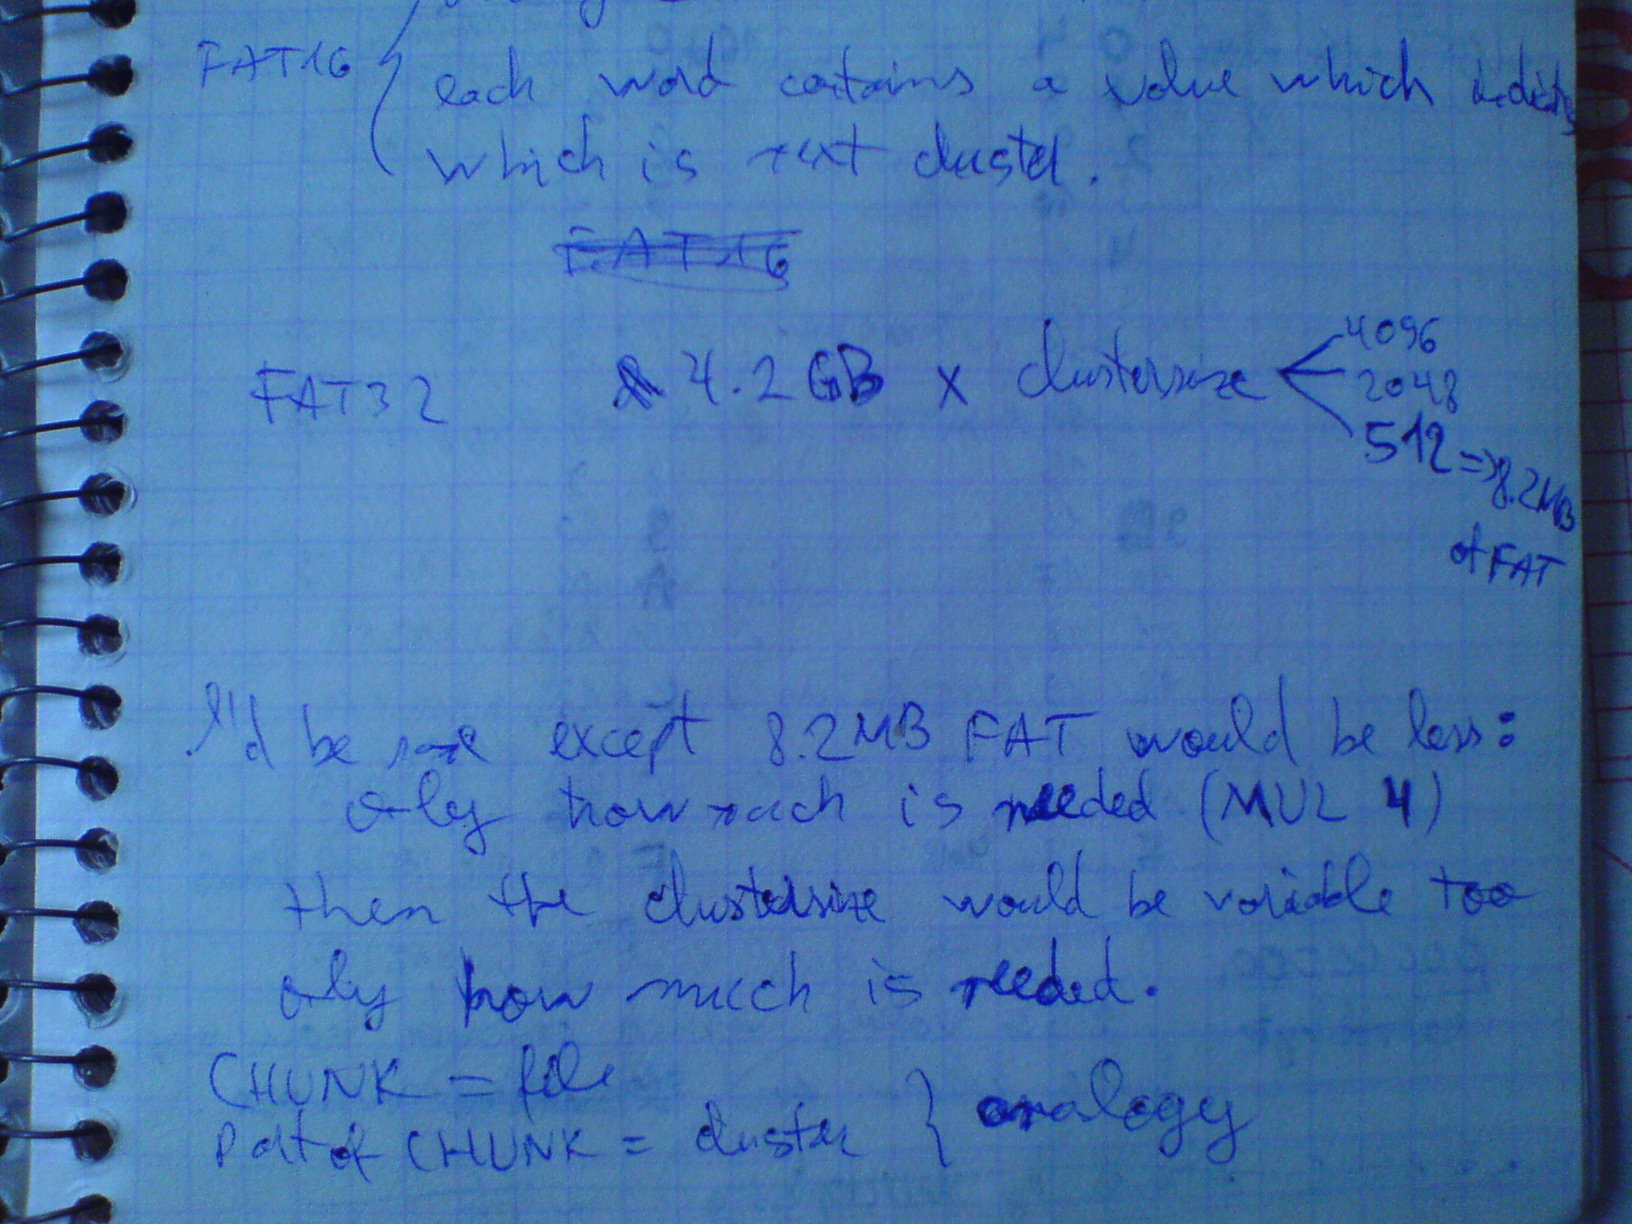 FAT16 { each word contains a value which indicates
which is next cluster.
FAT16
FAT32 4.2GB x clustersize < 4096
2048
512 => 8.2MB
of FAT
I'd be same except 8.2MB FAT would be less:
only how much is needed (MUL 4)
then the clustersize would be variable too
only how much is needed.
CHUNK = file
Part of CHUNK = cluster } analogy